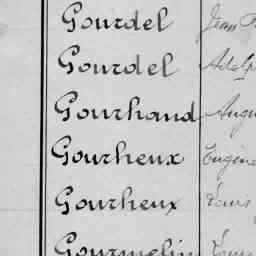 Gourdel Jean
Gourdel Adolp
Gourhand Augu
Gourheux Eugène
Gourheux Louis
Gourmelin Louis